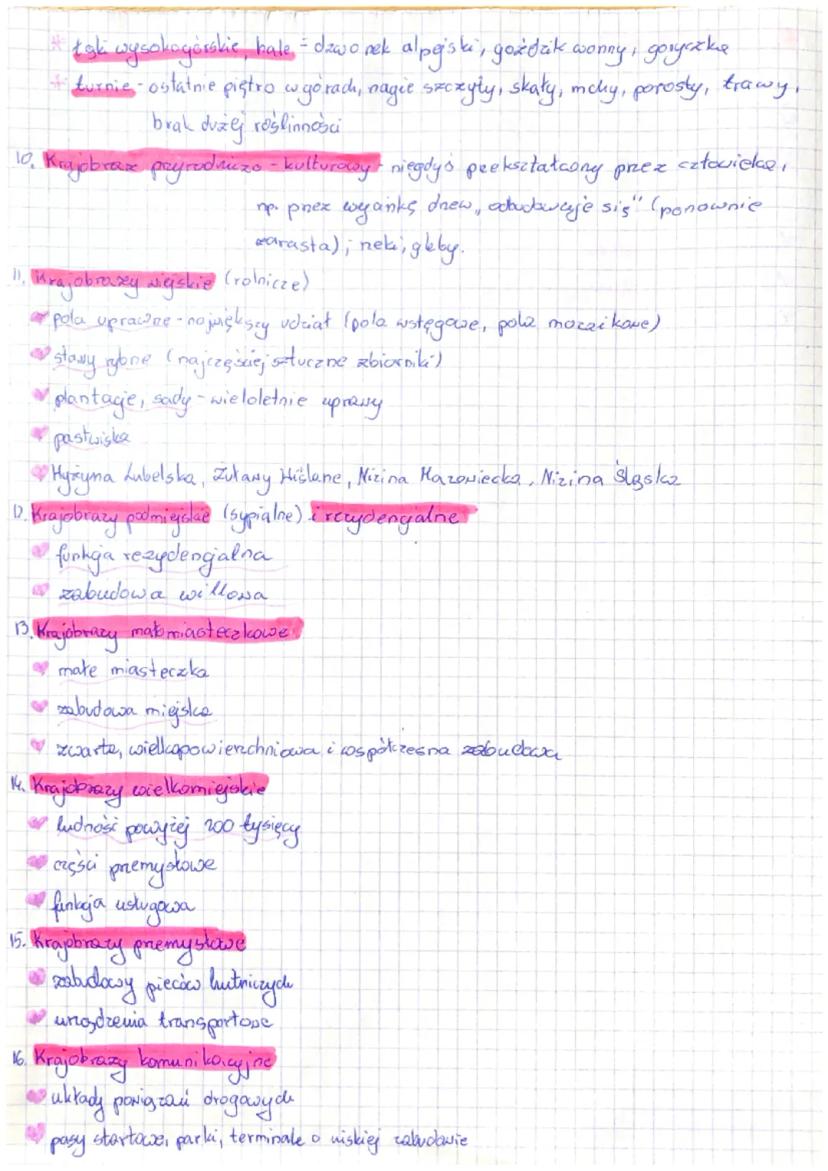 * łąki wysokogórskie, hale - dzwonek alpejski, goździk wonny, goryczka
* turnie - ostatnie piętro w górach, nagie szczyty, skały, mchy, porosty, trawy,
brak dużej roślinności
10. Krajobraz przyrodniczo - kulturowy - niegdyś przekształcony przez człowieka,
np. przez wycinkę drzew, „odbudowuje się" (ponownie
zarasta); rzeki, gleby.
11. Krajobrazy wiejskie (rolnicze)
pola uprawne - największy udział (pola wstęgowe, pola mozaikowe)
stawy rybne (najczęściej sztuczne zbiorniki)
plantacje, sady - wieloletnie uprawy
pastwiska
Wyżyna Lubelska, Żuławy Wiślane, Nizina Mazowiecka, Nizina Śląska
12. Krajobrazy podmiejskie (sypialne) i rezydencjalne
funkcja rezydencjalna
zabudowa willowa
13. Krajobrazy małomiasteczkowe
małe miasteczka
zabudowa miejska
zwarta, wielkopowierzchniowa i współczesna zabudowa
14. Krajobrazy wielkomiejskie
ludność powyżej 200 tysięcy
części przemysłowe
funkcja usługowa
15. Krajobrazy przemysłowe
zabudowy pieców hutniczych
urządzenia transportowe
16. Krajobrazy komunikacyjne
układy powiązań drogowych
pasy startowe, parki, terminale o niskiej zabudowie